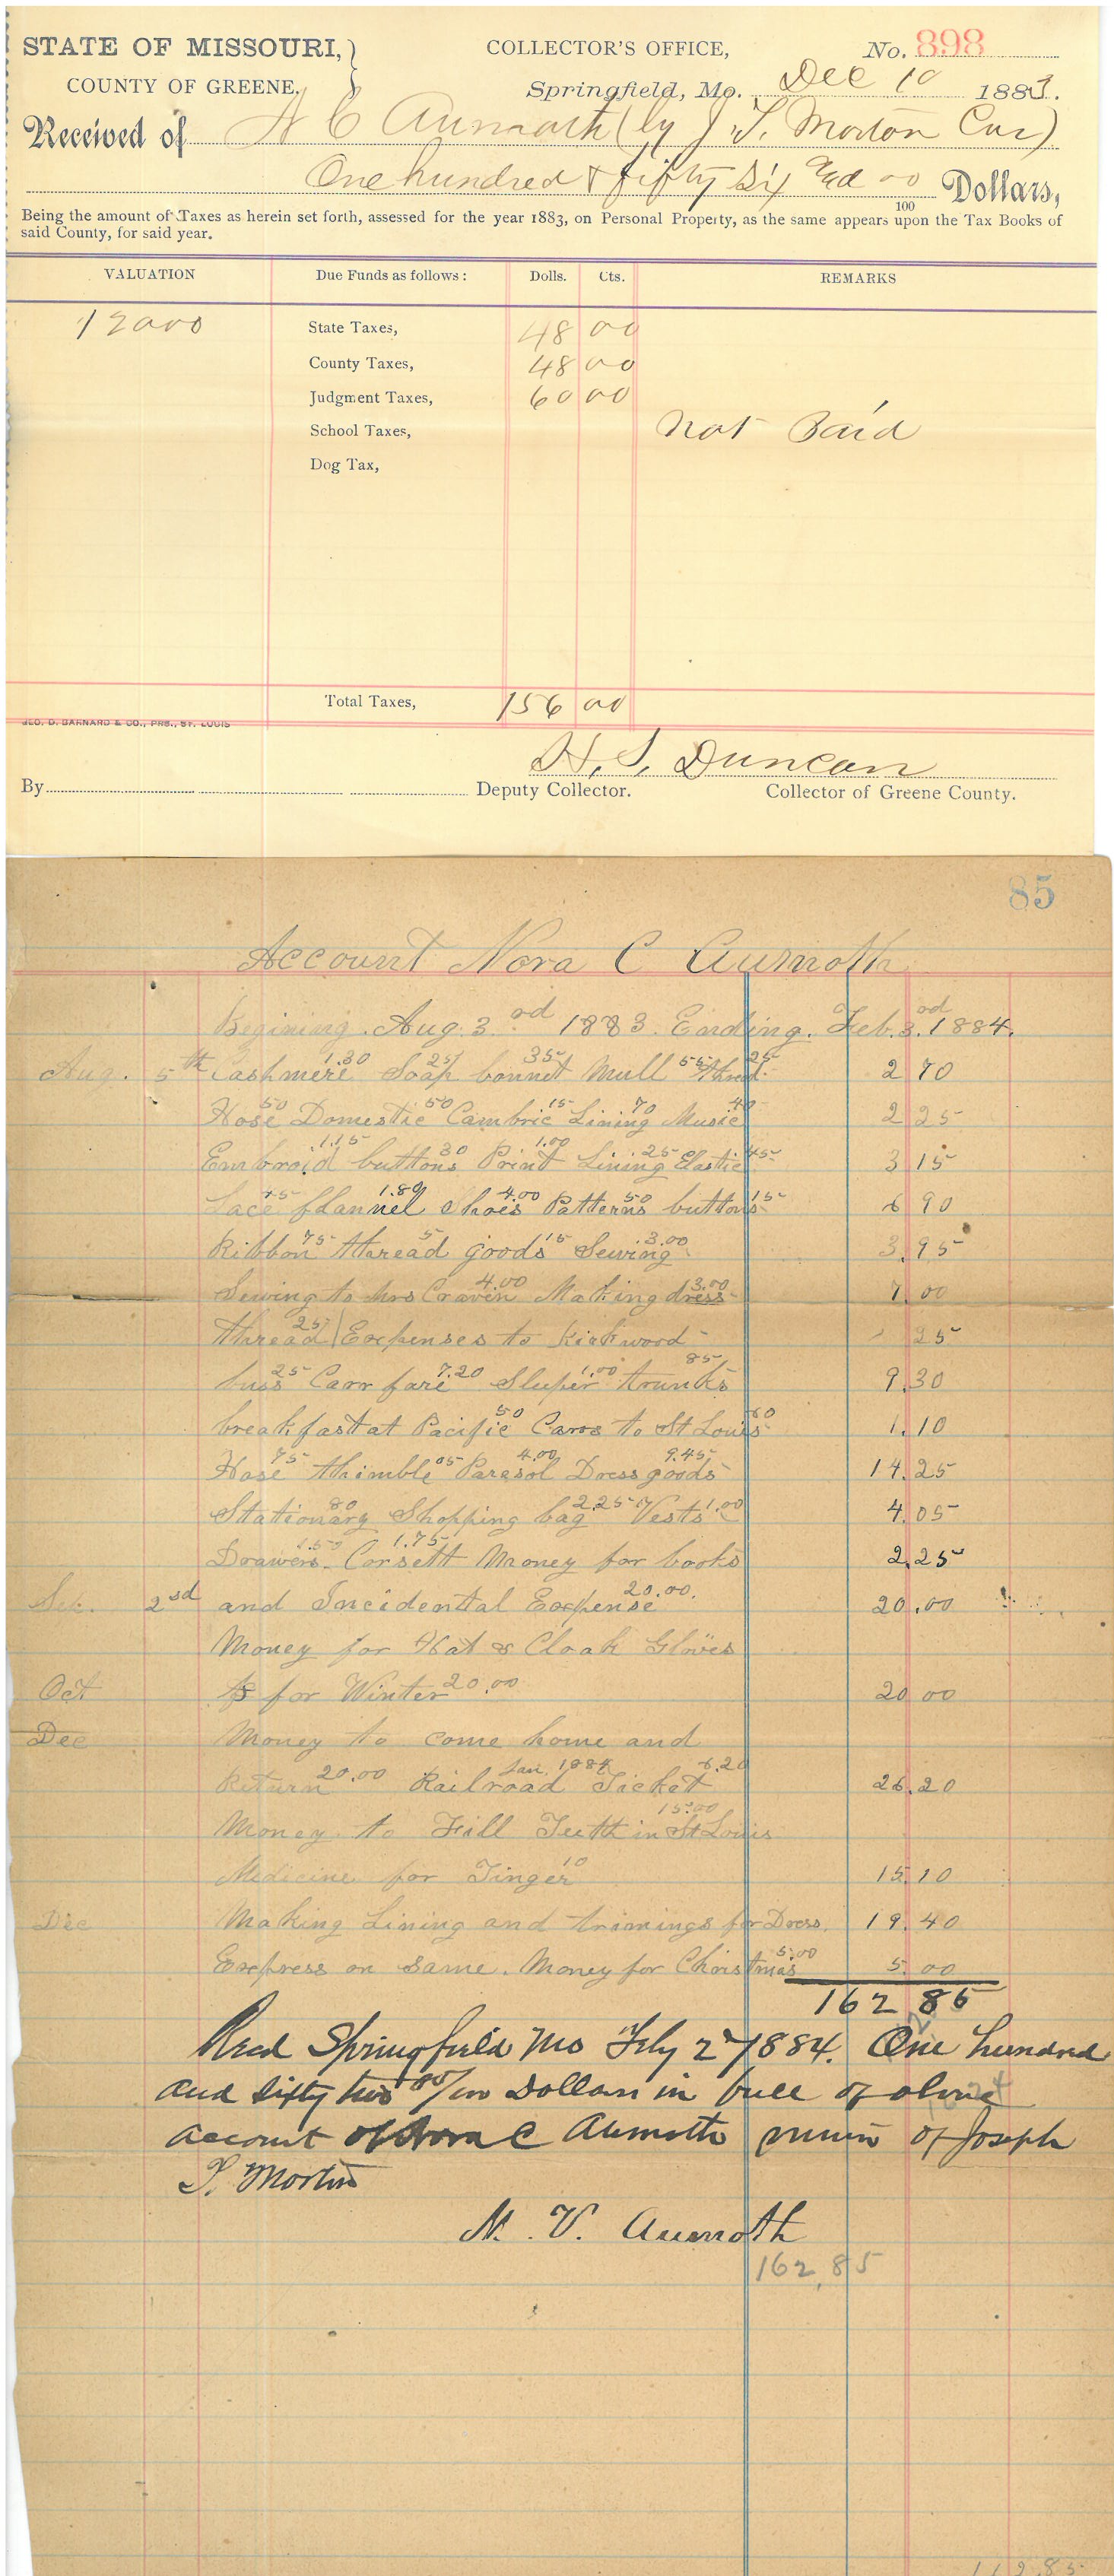 STATE OF MISSOURI,
COUNTY OF GREENE.
COLLECTOR'S OFFICE,
No. 898
Springfield, Mo. Dec 10 1883.
Received of N C Aumoth (by J. T. Morton Cur)
One hundred & fifty Six and 00/100 Dollars,
Being the amount of Taxes as herein set forth, assessed for the year 1883, on Personal Property, as the same appears upon the Tax Books of
said County, for said year.
VALUATION Due Funds as follows: Dolls. Cts. REMARKS
12000 State Taxes, 48 00
County Taxes, 48 00
Judgment Taxes, 60 00
School Taxes, Not Paid
Dog Tax,
Total Taxes, 156 00
GEO. D. BARNARD & CO., PRS., ST. LOUIS
H. S. Duncan
By Deputy Collector. Collector of Greene County.
85
Account Nora C Aumoth
Begining. Aug. 3 od 1883. Ending. Feb. 3. od 1884.
Aug. 5th Cashmere 1.30 Soap 25 bonnet 35 Mull 55 thred 25 2 70
Hose 50 Domestic 50 Cambric 15 Lining 70 Music 40 2 25
Embroid 1.15 buttons 30 Print 1.00 Lining 25 Elastic 45 3 15
Lace 45 flannel 1.80 Shoes 4.00 Patterns 50 buttons 15 6 90
Ribbon 75 thread 5 goods 15 Sewing 3.00 3.95
Sewing to Mrs Craven 4.00 Making dress 3.00 7.00
thread 25 Expenses to Kirkwood 25
buss 25 Carr fare 7.20 Sleeper 1.00 trunks 85 9.30
breakfast at Pacific 50 Carrs to St Louis 60 1.10
Hose 75 thimble 05 Parasol 4.00 Dress goods 9.45 14.25
Stationary 80 Shopping bag 2.25 Vests 1.00 4.05
Drawers .50 Corsett 1.75 Money for books 2.25
Sep. 2nd and Incidental Expense 20.00. 20.00
Money for Hat & Cloak Gloves
Oct for Winter 20.00 20 00
Dec Money to come home and
Return 20.00 Jan. 1884 Railroad Ticket 6.20 26.20
Money to Fill Teeth in St Louis 15.00
Medicine for Finger 10 15.10
Dec Making Lining and trimings for Dress. 19.40
Express on same. Money for Christmas 5.00 5.00
162 85
Recd Springfield Mo Feby 2 1884. One hundred
and Sixty two 85/100 Dollars in full of above
account of Nora C Aumoth minor of Joseph
T. Morton
N. V. Aumoth
162.85